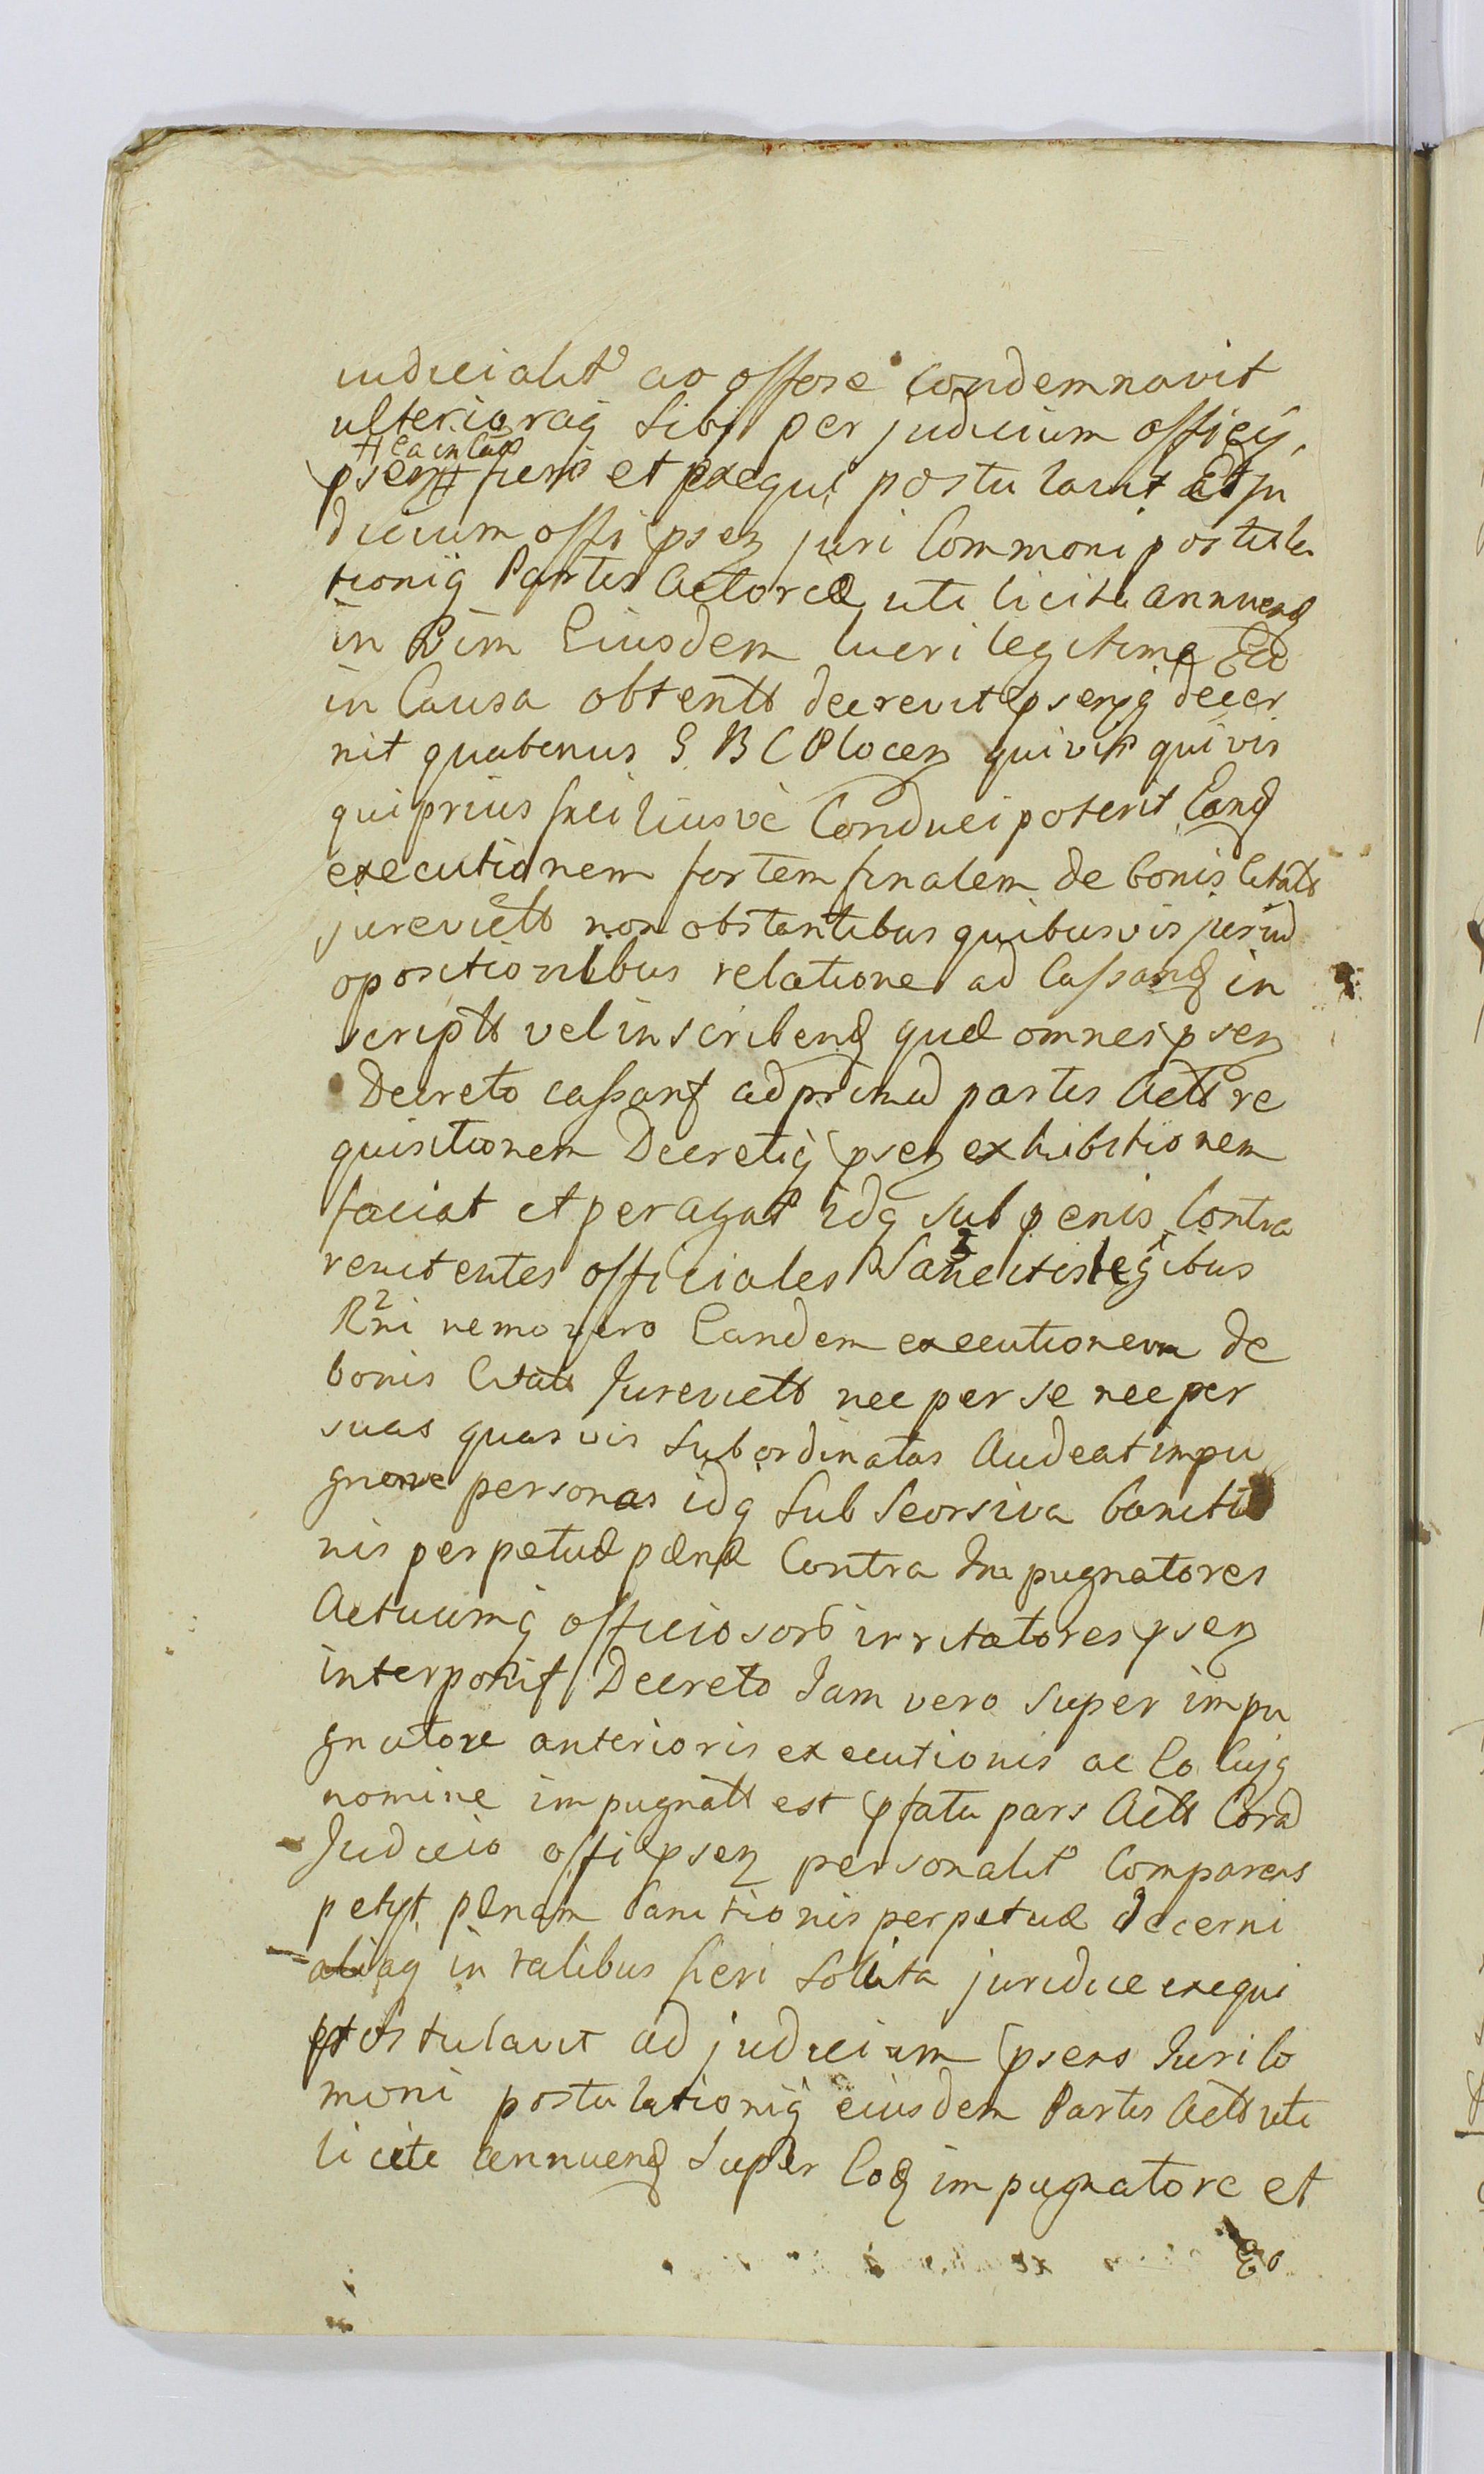 iudicialit ac offose condemnavit
ulterioraq sibi per judicium officij
H ea in Causa
psen H fieri et exequi postulavit Et Ju
dicium offi psen juri Commoni postula
tioniq Partis Actoreæ uti licita annuend
in Vim Eiusdem lucri legitime Ea
in Causa obtentt decrevit psenq decer
nit quatenus S B C Plocen quivis quivis
qui prius faciliusvè Conduci poterit Eand
executionem fortem finalem de bonis Citatt
jurevictt non obstantibus quibusvis jurid
opositionibus relatione ad Cassand in
scriptt vel inscribend quæ omnes psen
Decreto cassant ad primã partis Actt re
quisitionem Decretiq psen exhibitionem
faciat et peragat idq sub penis Contra
renitentes officiales Sancitis legibus
Rni nemo vero Eandem executionem de
bonis Citatt Jurevictt nec per se nec per
suas quasvis Subordinatas Audeat impu
gnare personas idq Sub Seorsiva banitio
nis perpetuæ pænæ Contra Impugnatores
Actuumq officiosorũ irritatores psen
interposit Decreto Iam vero super impu
gnatore anterioris executionis ac Eo Cujq
nomine impugnatt est pfata pars Actt Corã
Judicio offi psen personalit Comparens
petyt pænam banitionis perpetuæ decerni
aliaq in talibus fieri Solita juridice exequi
postulavit ad judicium psens Iuri Co
moni postulationiq eiusdem Partis Actt uti
licite annuend Super Eod impugnatore et
Eo